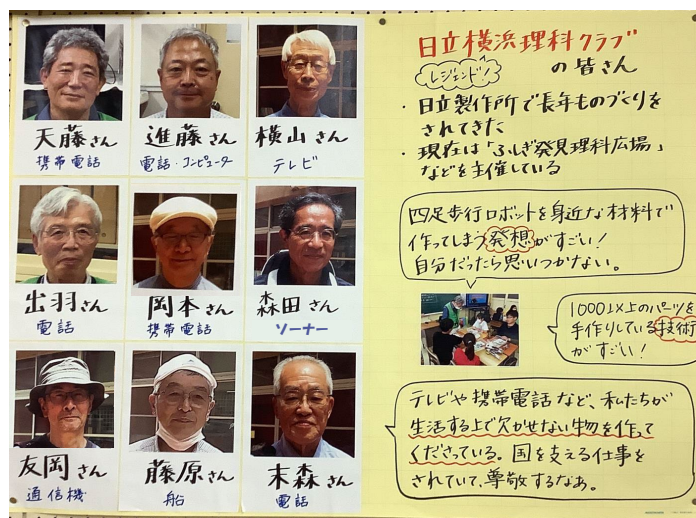 天藤さん
携帯電話
進藤さん
電話・コンピューター
横山さん
テレビ
出羽さん
電話
岡本さん
携帯電話
森田さん
ソーナー
友岡さん
通信機
藤原さん
船
末森さん
電話
日立横浜理科クラブ
レジェンド!
の皆さん
・日立製作所で長年ものづくりを
されてきた
・現在は「ふしぎ発見理科広場」
などを主催している
四足歩行ロボットを身近な材料で
作ってしまう発想がすごい!
自分だったら思いつかない。
1000以上のパーツを
手作りしている技術
がすごい!
テレビや携帯電話など、私たちが
生活する上で欠かせない物を作って
くださっている。国を支える仕事を
されていて、尊敬するなあ。